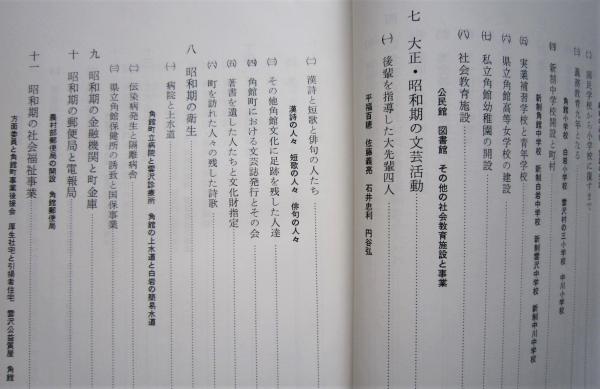 ㈡ 国民学校から小学校に復すまで
角館小学校 白岩小学校 雲沢村の三小学校 中川小学校
㈢ 義務教育九年となる
㈣ 新制中学校施設と町村
新制角館中学校 新制白岩中学校 新制雲沢中学校 新制中川中学校
㈤ 実業補習学校と青年学校
㈥ 県立角館高等女学校の建設
㈦ 私立角館幼稚園の開設
㈧ 社会教育施設
公民館 図書館 その他の社会教育施設と事業
七 大正・昭和期の文芸活動
㈠ 後輩を指導した大先輩四人
平福百穂 佐藤義亮 石井忠利 円谷弘
㈡ 漢詩と短歌と俳句の人たち
漢詩の人々 短歌の人々 俳句の人々
㈢ その他角館文化に足跡を残した人達
㈣ 角館町における文芸誌発行とその会
㈤ 著書を遺した人たちと文化財指定
㈥ 町を訪れた人々の残した詩歌
八 昭和期の衛生
㈠ 病院と上水道
角館町立病院と雲沢診療所 角館の上水道と白岩の簡易水道
㈡ 伝染病発生と隔離病舎
㈢ 県立角館保健所の誘致と国保事業
九 昭和期の金融機関と町金庫
十 昭和期の郵便局と電報局
農村部郵便局の開設 角館郵便局
十一 昭和期の社会福祉事業
方面委員と角館町事業後援会 厚生社宅と引揚者住宅 雲沢公益質屋 角館